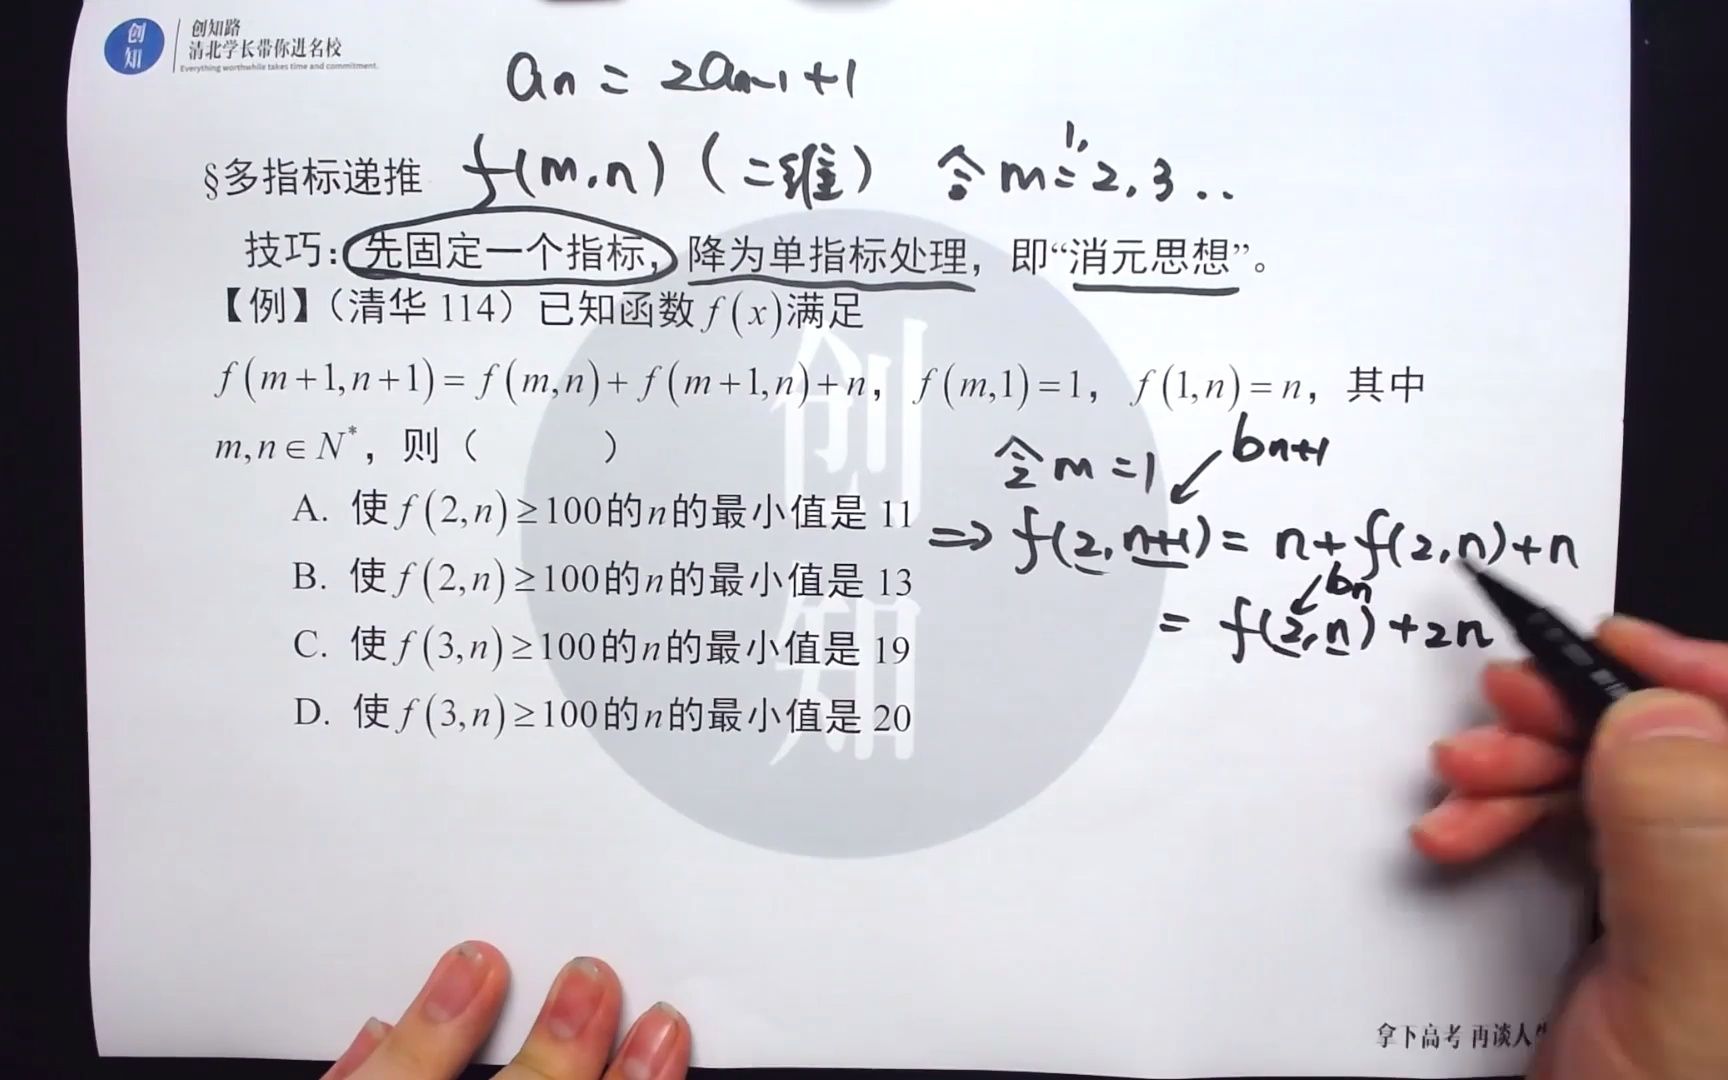 创知
创知路
清北学长带你进名校
Everything worthwhile takes time and commitment.
an = 2an-1+1
§多指标递推 f(m,n)(二维) 令m=1,2,3..
技巧：先固定一个指标，降为单指标处理，即“消元思想”。
【例】（清华 114）已知函数 f(x)满足
f(m+1,n+1)= f(m,n)+ f(m+1,n)+n，f(m,1)=1，f(1,n)=n，其中
m,n∈N*，则（ ）
令m=1
bn+1
A. 使f(2,n)≥100的n的最小值是 11
⇒ f(2,n+1)= n+f(2,n)+n
B. 使f(2,n)≥100的n的最小值是 13
bn
= f(2,n)+2n
C. 使f(3,n)≥100的n的最小值是 19
D. 使f(3,n)≥100的n的最小值是 20
创知
拿下高考 再谈人